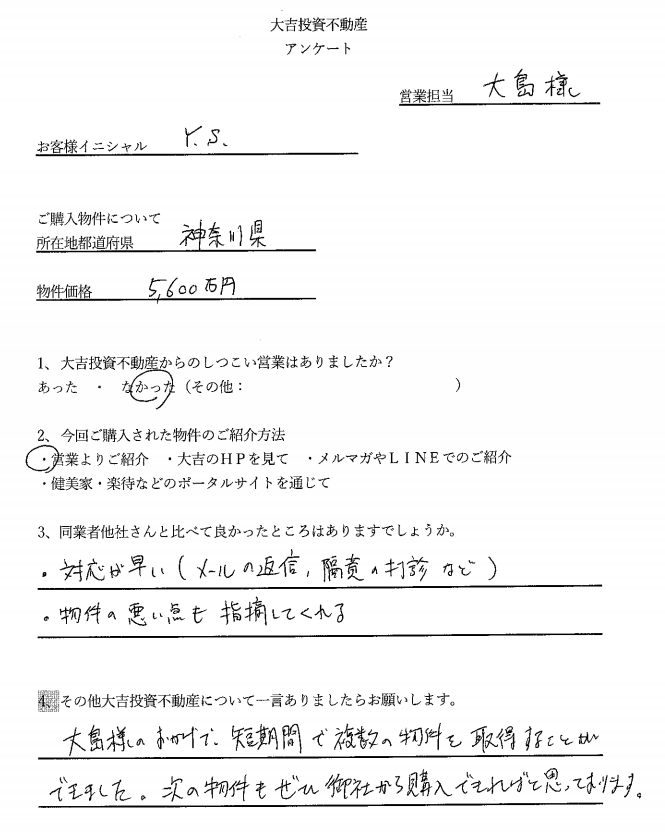 大吉投資不動産
アンケート
営業担当 大島様
お客様イニシャル Y.S.
ご購入物件について
所在地都道府県 神奈川県
物件価格 5,600万円
1、大吉投資不動産からのしつこい営業はありましたか？
あった ・ なかった（その他： ）
2、今回ご購入された物件のご紹介方法
・営業よりご紹介 ・大吉のＨＰを見て ・メルマガやＬＩＮＥでのご紹介
・健美家・楽待などのポータルサイトを通じて
3、同業者他社さんと比べて良かったところはありますでしょうか。
・対応が早い（メールの返信，融資の打診など）
・物件の悪い点も指摘してくれる
4、その他大吉投資不動産について一言ありましたらお願いします。
大島様のおかげで、短期間で複数の物件を取得することが
できました。次の物件もぜひ御社から購入できればと思っております。